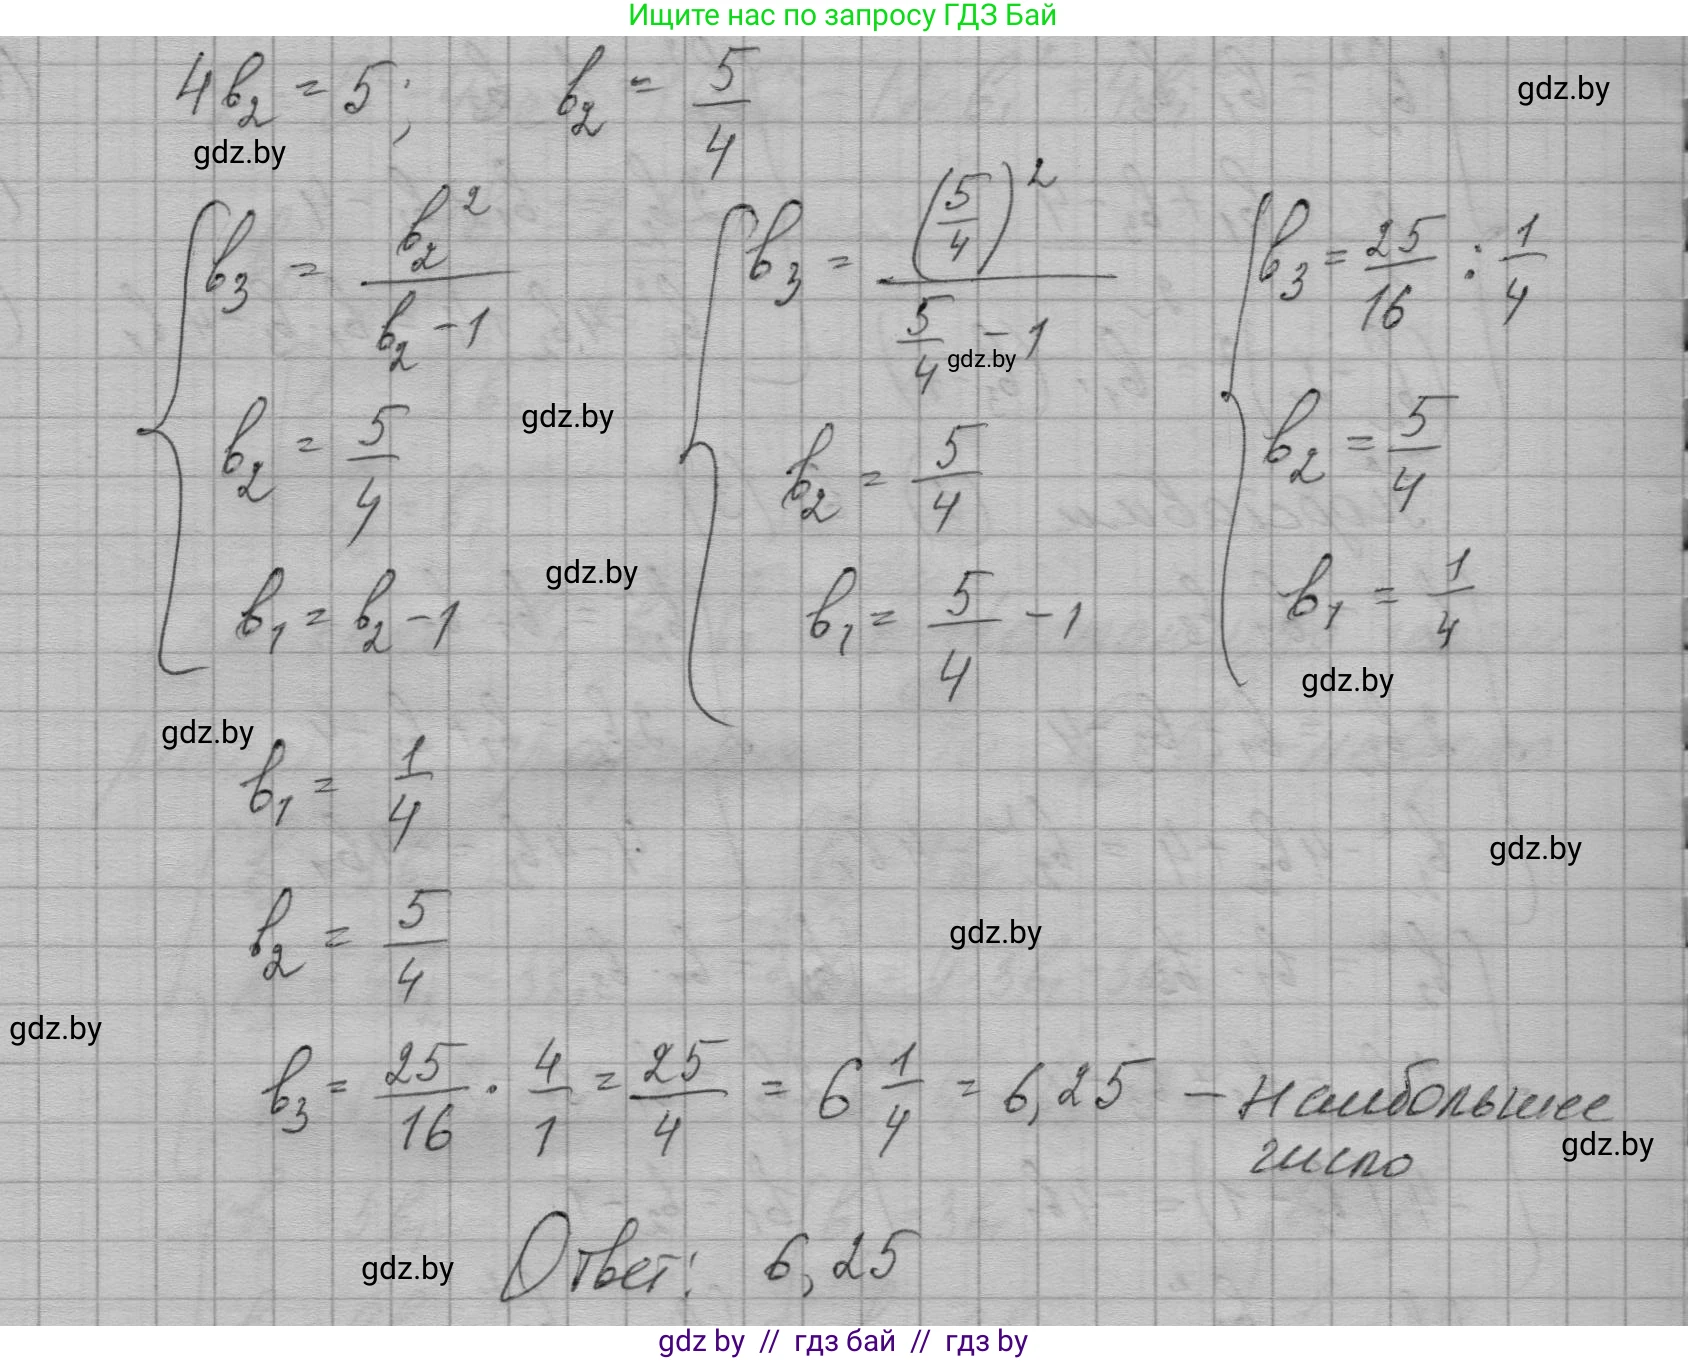 Ищите нас по запросу ГДЗ Бай
4b₂ = 5; b₂ = 5/4
gdz.by
gdz.by
{ b₃ = b₂²/(b₂ - 1) { b₃ = (5/4)²/(5/4 - 1) { b₃ = 25/16 : 1/4
gdz.by
b₂ = 5/4 b₂ = 5/4 b₂ = 5/4
gdz.by
gdz.by
b₁ = b₂ - 1 b₁ = 5/4 - 1 b₁ = 1/4
gdz.by
gdz.by
b₁ = 1/4
gdz.by
b₂ = 5/4
gdz.by
gdz.by
b₃ = 25/16 · 4/1 = 25/4 = 6 1/4 = 6,25 — наибольшее
число
gdz.by
Ответ: 6,25
gdz.by
gdz by // гдз бай // гдз by